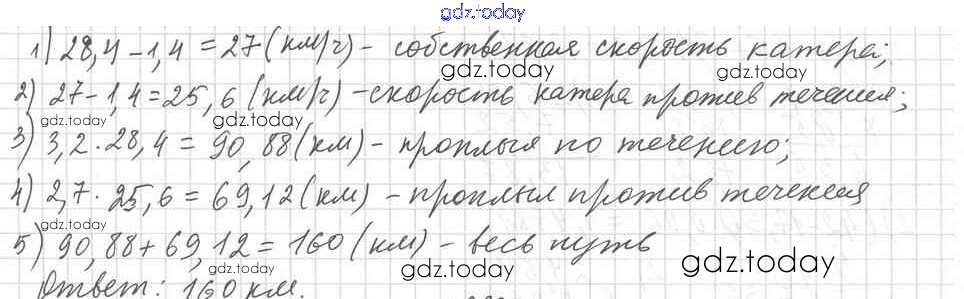 gdz.today
1) 28,4 - 1,4 = 27 (км/ч) - собственная скорость катера;
gdz.today gdz.today
2) 27 - 1,4 = 25,6 (км/ч) - скорость катера против течения;
gdz.today gdz.today
3) 3,2 · 28,4 = 90,88 (км) - проплыл по течению;
gdz.today
4) 2,7 · 25,6 = 69,12 (км) - проплыл против течения
gdz.today gdz.today
5) 90,88 + 69,12 = 160 (км) - весь путь
gdz.today gdz.today gdz.today
Ответ: 160 км.